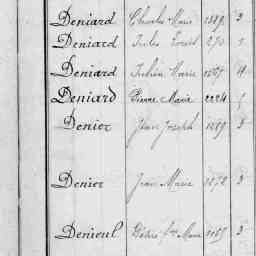 Deniard Charles Marie 1889 3
Deniard Jules Ernest
Deniard Julien Marie 1887
Deniard Pierre Marie 2224
Denier Jean Joseph 1889 3
Denier Jean Marie 1872 3
Denieul Marie 3